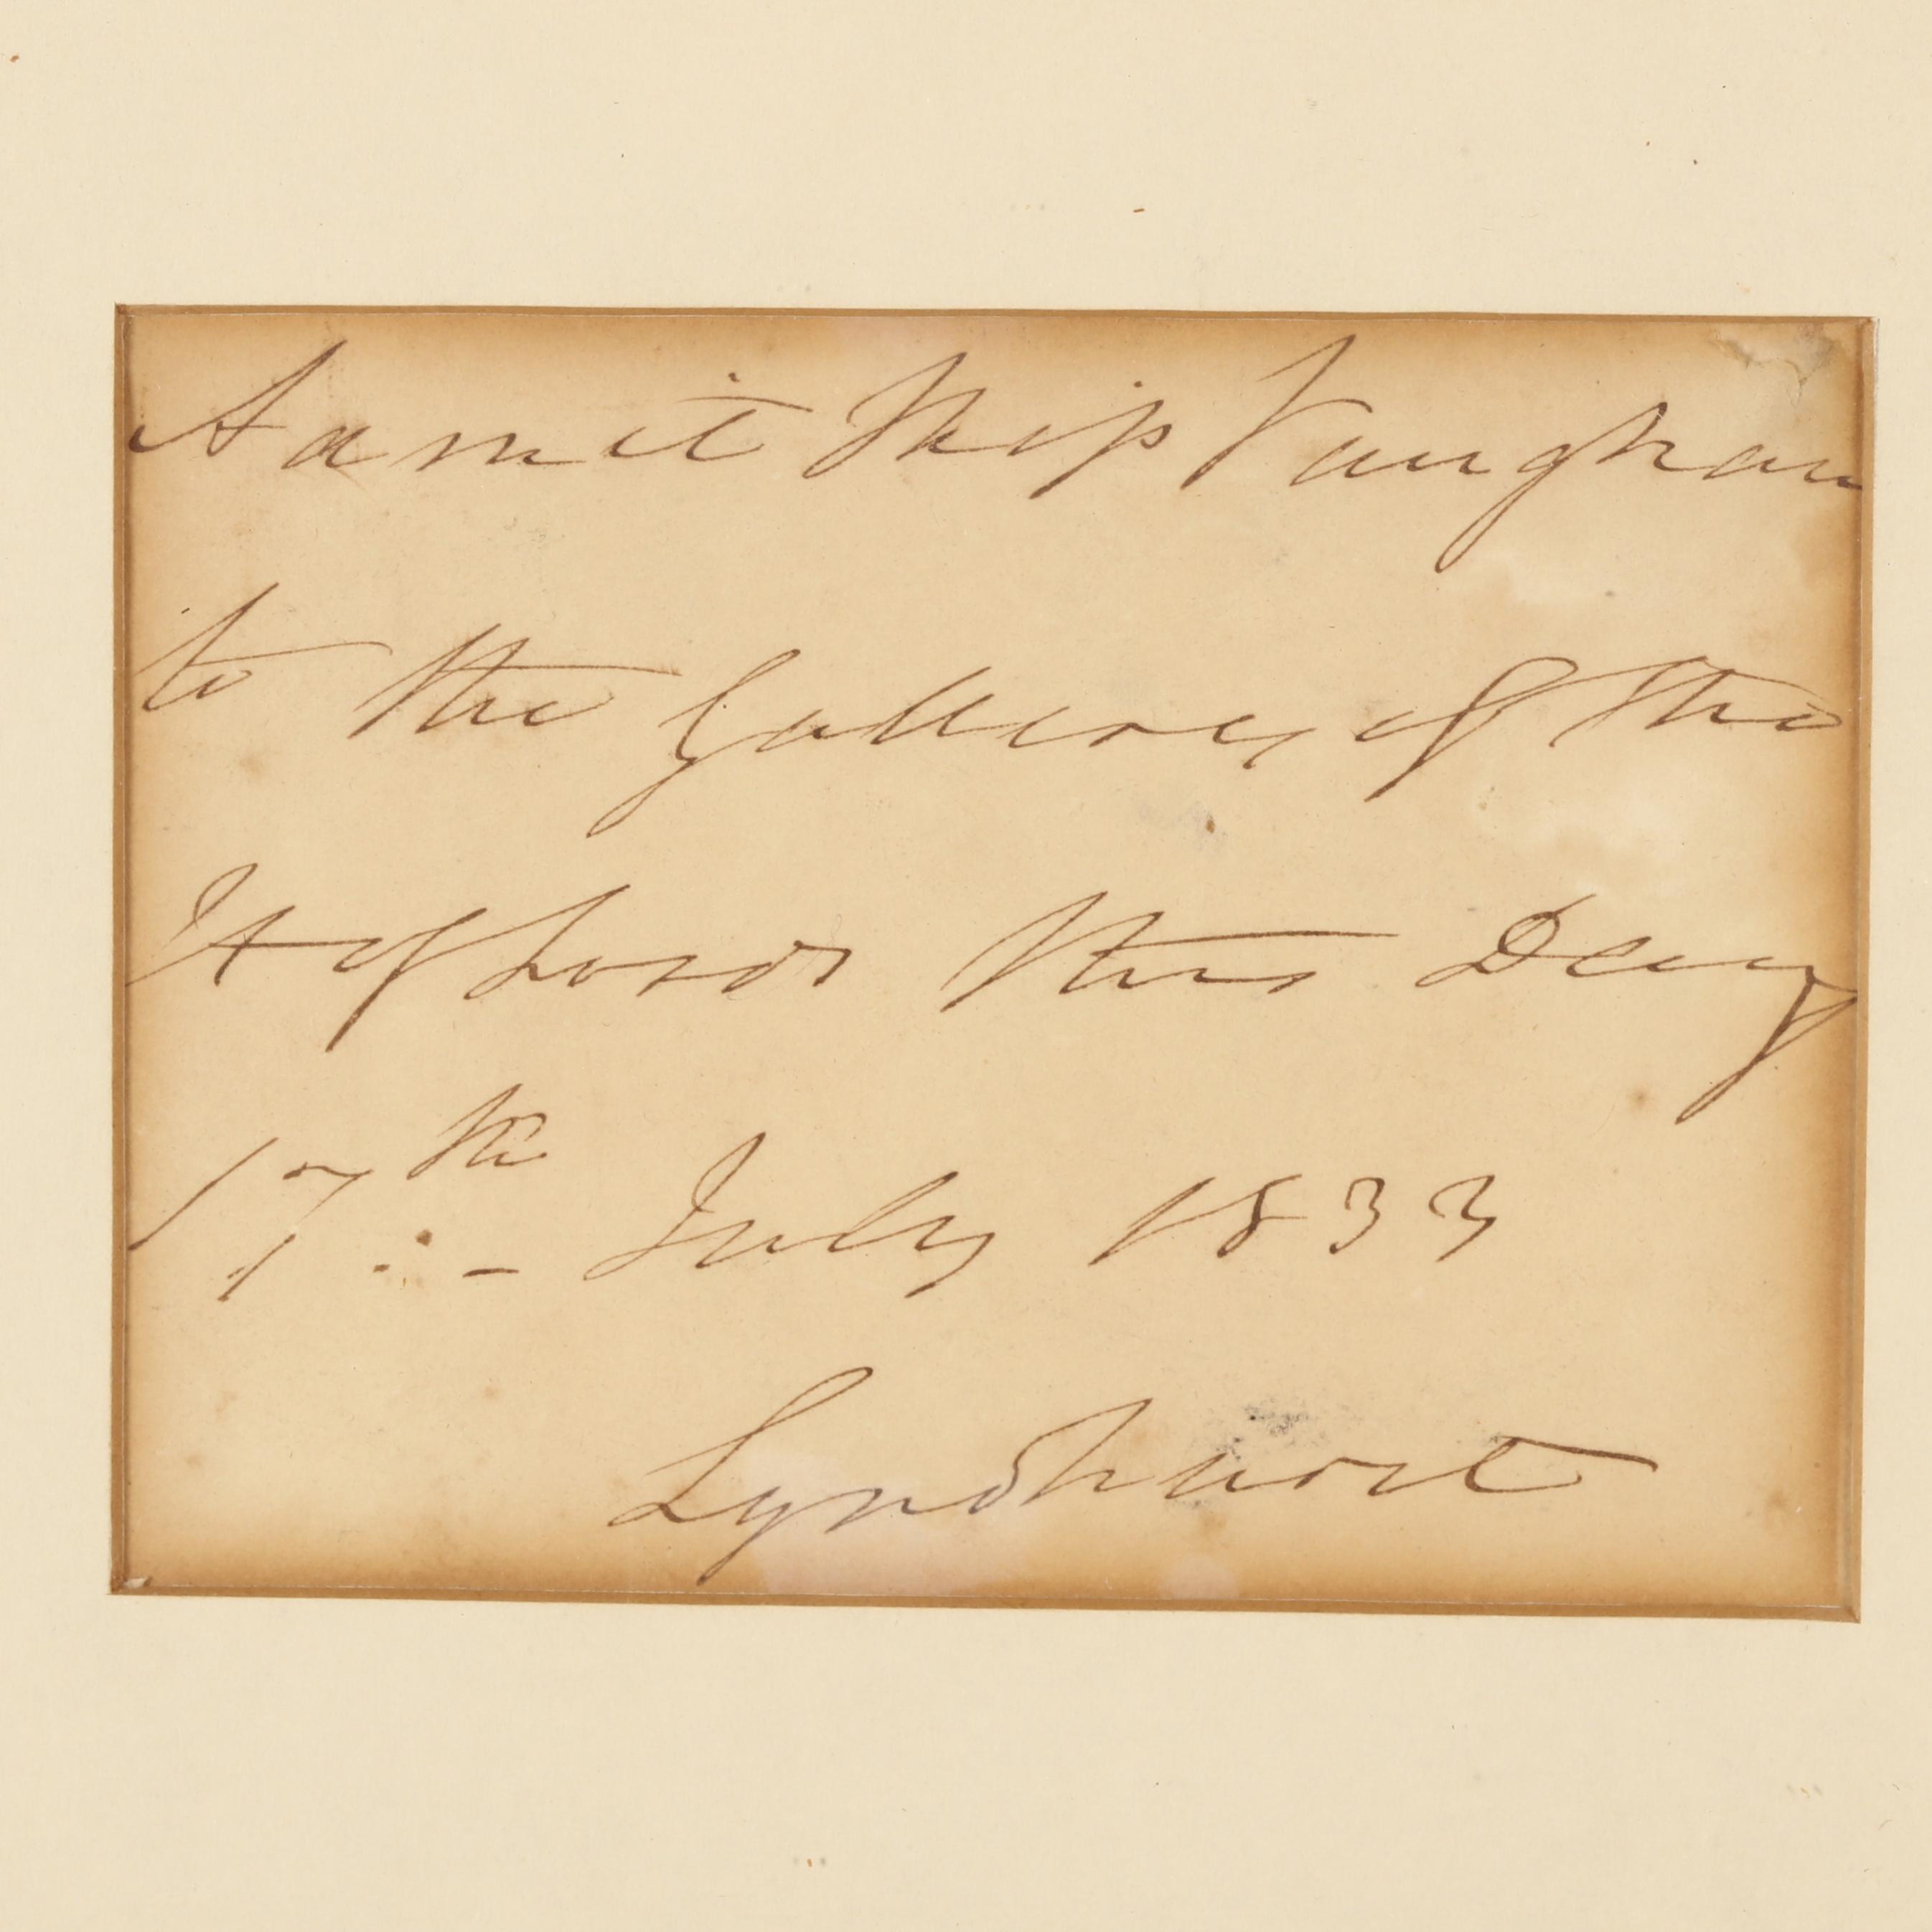 Admit Miss Vaughan
to the Gallery of the
H of Lords this Day
17th July 1833
Lyndhurst